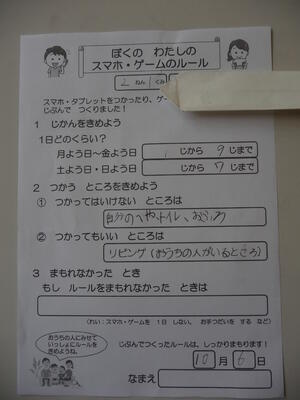 ぼくの わたしの
スマホ・ゲームのルール
2 ねん 1 くみ
スマホ・タブレットをつかったり、ゲー
じぶんで つくりました！
1 じかんをきめよう
1日どのくらい？
月よう日～金よう日 じから 9 じまで
土よう日・日よう日 じから 7 じまで
2 つかう ところをきめよう
① つかってはいけない ところは
自分のへや、トイレ、おふろ
② つかってもいい ところは
リビング（おうちの人がいるところ）
3 まもれなかった とき
もし ルールをまもれなかった ときは
（れい：スマホ・ゲームを 1日 しない、 おてつだいを する など）
おうちの人にみせて
いっしょにルールを
きめようね。
じぶんでつくったルールは、しっかりまもります！
10 月 6 日
なまえ